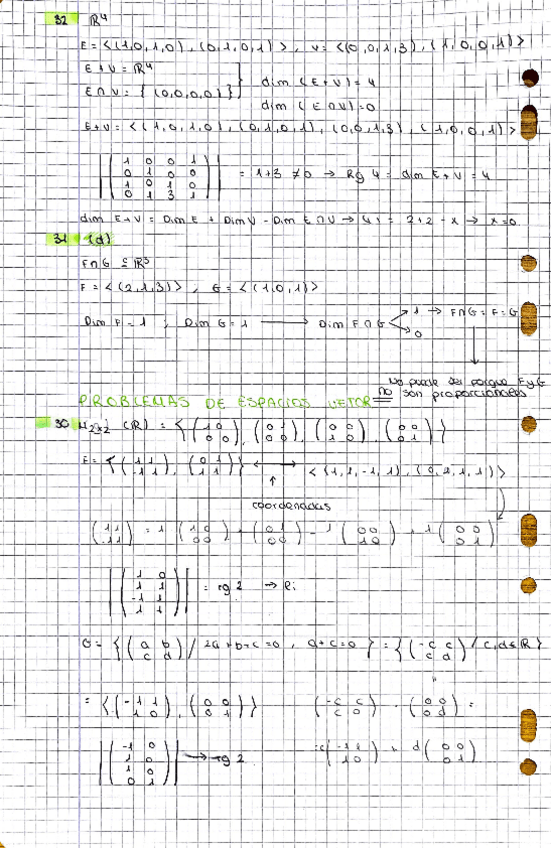 32 ℝ⁴
E = <(1,0,1,0), (0,1,0,1)>, V = <(0,0,1,3), (1,0,0,1)>
E+V = ℝ⁴
E∩V = {(0,0,0,0)}
dim (E+V) = 4
dim (E∩V) = 0
E+V = <(1,0,1,0), (0,1,0,1), (0,0,1,3), (1,0,0,1)>
|(1 0 0 1
0 1 0 0
1 0 1 0
0 1 3 1)| = 1+3 ≠ 0 → Rg 4 = dim E+V = 4
dim E+V = Dim E + Dim V - Dim E∩V → 4 = 2+2 - x → x=0
31 (d)
F∩G ⊆ ℝ³
F = <(2,1,3)>, G = <(1,0,1)>
Dim F = 1 ; Dim G = 1 → Dim F∩G
1 → F∩G = F = G
0
No puede ser porque F y G
no son proporcionales
PROBLEMAS DE ESPACIOS VECTOR
30 M2x2 (ℝ) = <(1 0
0 0), (0 1
0 0), (0 0
1 0), (0 0
0 1)>
F = <(1 1
-1 1), (0 1
1 1)> ↔ <(1,1,-1,1), (0,1,1,1)>
coordenadas
(1 1
-1 1) = 1 (1 0
0 0) + (0 1
0 0) - 1 (0 0
1 0) + 1 (0 0
0 1)
|(1 0
1 1
-1 1
1 1)| = rg 2 →
G = {(a b
c d) / 2a+b+c=0, a+c=0} = {(-c c
c d) / c,d∈ℝ}
= <(-1 1
1 0), (0 0
0 1)>
(-c c
c 0) + (0 0
0 d) =
|(-1 0
1 0
1 0
0 1)| → rg 2
c(-1 1
1 0) + d(0 0
0 1)